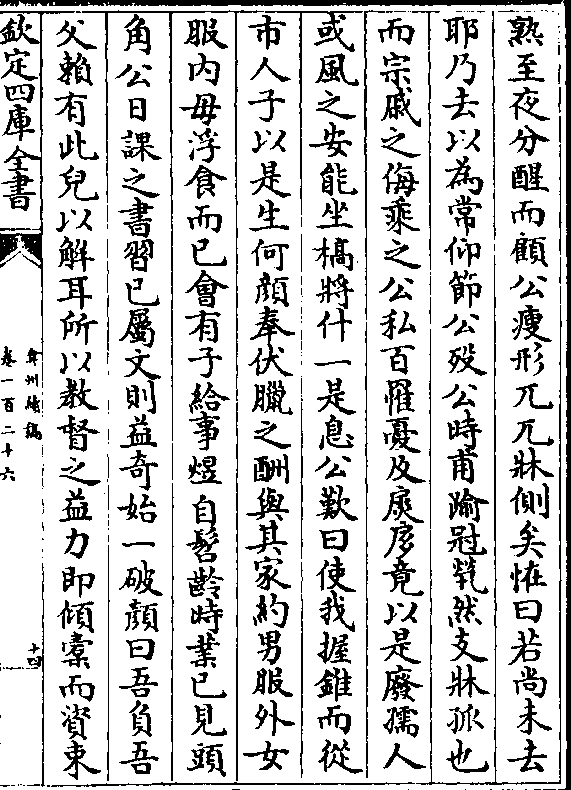 熟至夜分醒而顧公瘦形兀兀牀側矣恠曰若尚未去
耶乃去以為常仰節公歿公時甫踰冠煢然支牀孤也
而宗戚之侮乘之公私百罹憂及扊扅竟以是廢孺人
或風之安能坐槁將什一是息公歎曰使我握錐而從
市人子以是生何顔奉伏臘之酬與其家約男服外女
服内毋浮食而已會有子給事煜自髫齡時業已見頭
角公日課之書習已屬文則益奇始一破顔曰吾負吾
父賴有此兒以解耳所以教督之益力即傾橐而資束
欽定四庫全書
弇州續稿
卷一百二十六
十四